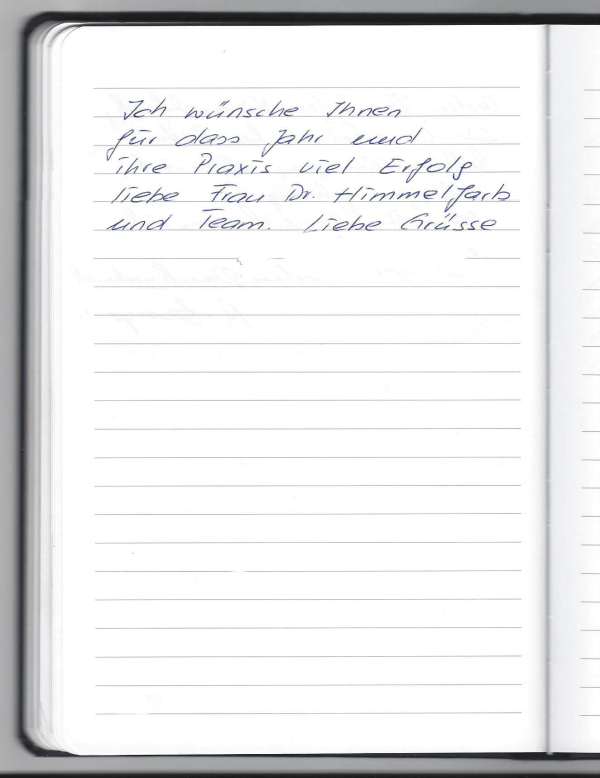 Ich wünsche Ihnen
für dass Jahr und
ihre Praxis viel Erfolg
liebe Frau Dr. Himmelfarb
und Team. Liebe Grüsse